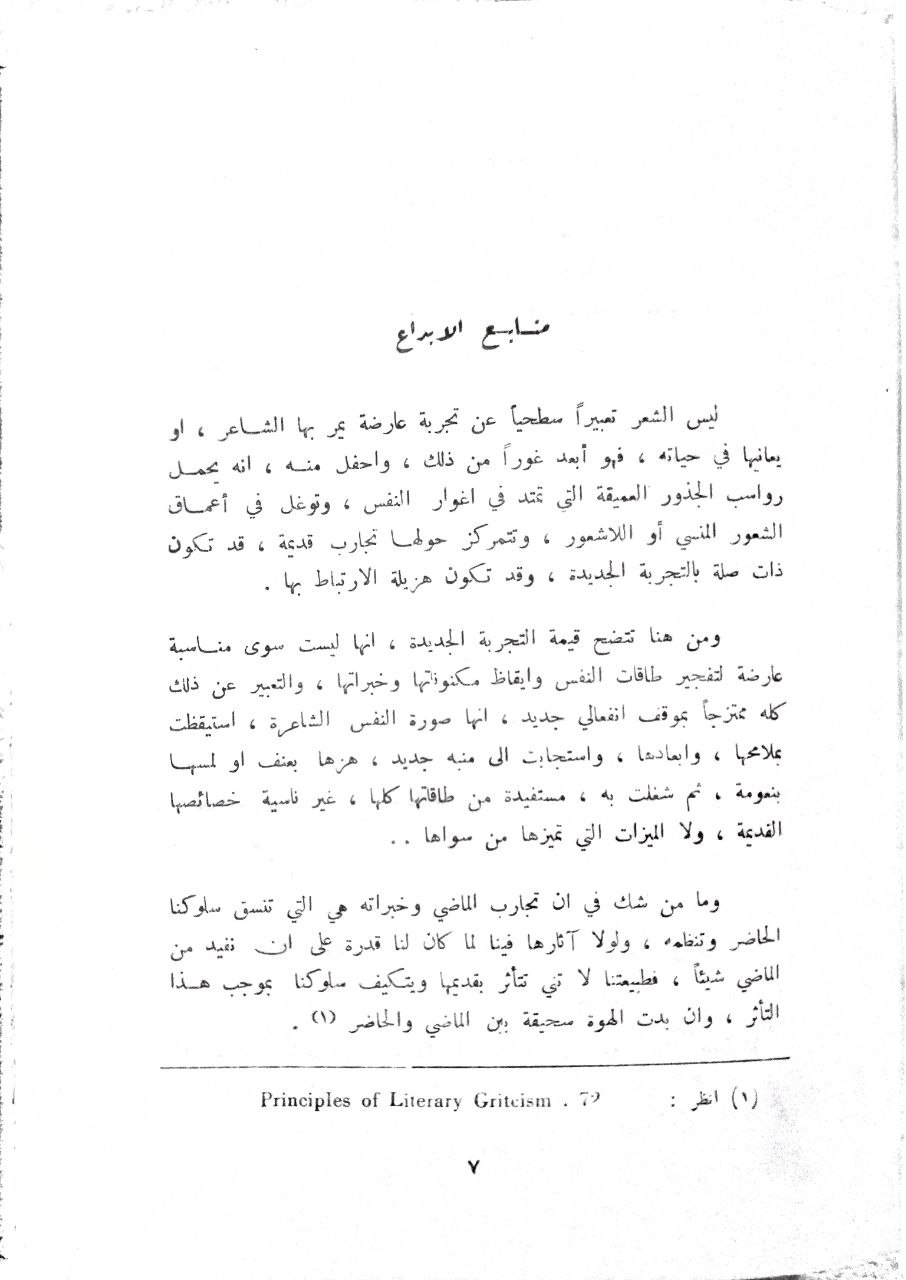 منابع الابداع
ليس الشعر تعبيراً سطحياً عن تجربة عارضة يمر بها الشاعر ، او
يعانيها في حياته ، فهو أبعد غوراً من ذلك ، واحفل منه ، انه يحمل
رواسب الجذور العميقة التي تمتد في اغوار النفس ، وتوغل في أعماق
الشعور المنسي أو اللاشعور ، وتتمركز حولها تجارب قديمة ، قد تكون
ذات صلة بالتجربة الجديدة ، وقد تكون هزيلة الارتباط بها .
ومن هنا تتضح قيمة التجربة الجديدة ، انها ليست سوى مناسبة
عارضة لتفجير طاقات النفس وايقاظ مكنوناتها وخبراتها ، والتعبير عن ذلك
كله ممتزجاً بموقف انفعالي جديد ، انها صورة النفس الشاعرة ، استيقظت
بملامحها ، وابعادها ، واستجابت الى منبه جديد ، هزها بعنف او لمسها
بنعومة ، ثم شغلت به ، مستفيدة من طاقاتها كلها ، غير ناسية خصائصها
القديمة ، ولا الميزات التي تميزها من سواها . .
وما من شك في ان تجارب الماضي وخبراته هي التي تنسق سلوكنا
الحاضر وتنظمه ، ولولا آثارها فينا لما كان لنا قدرة على ان نفيد من
الماضي شيئاً ، فطبيعتنا لا تني تتأثر بقديمها ويتكيف سلوكنا بموجب هذا
التأثر ، وان بدت الهوة سحيقة بين الماضي والحاضر (١) .
(١) انظر : Principles of Literary Gritcism . 79
٧